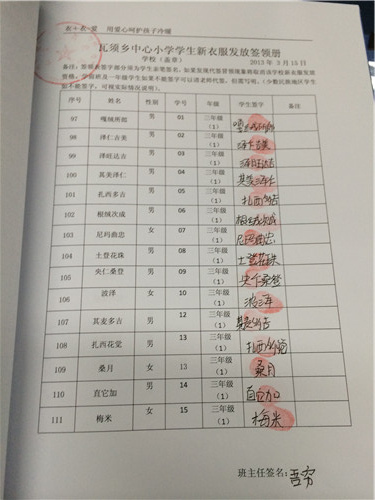 衣+衣=爱 用爱心呵护孩子冷暖
瓦须乡中心小学学生新衣服发放签领册
学校(盖章) 2013年3月15日
序号 姓名 性别 学号 年级 学生签字 备注
97 嘎绒所郎 男 01 三年级(1)
98 泽仁吉美 男 02 三年级(1) 泽仁吉美
99 泽旺达吉 男 03 三年级(1) 泽旺达吉
100 其美泽仁 男 04 三年级(1) 其美泽仁
101 扎西多吉 男 05 三年级(1) 扎西多吉
102 根绒次成 男 06 三年级(1) 根绒次成
103 尼玛曲忠 女 07 三年级(1) 尼玛曲忠
104 土登花珠 男 08 三年级(1) 土登花珠
105 央仁桑登 男 09 三年级(1) 央仁桑登
106 波泽 女 10 三年级(1) 波泽
107 其麦多吉 男 12 三年级(1) 其麦多吉
108 扎西花觉 男 13 三年级(1) 扎西花觉
109 桑月 女 13 三年级(1) 桑月
110 直它加 男 14 三年级(1) 直它加
111 梅米 女 15 三年级(1) 梅米
班主任签名: